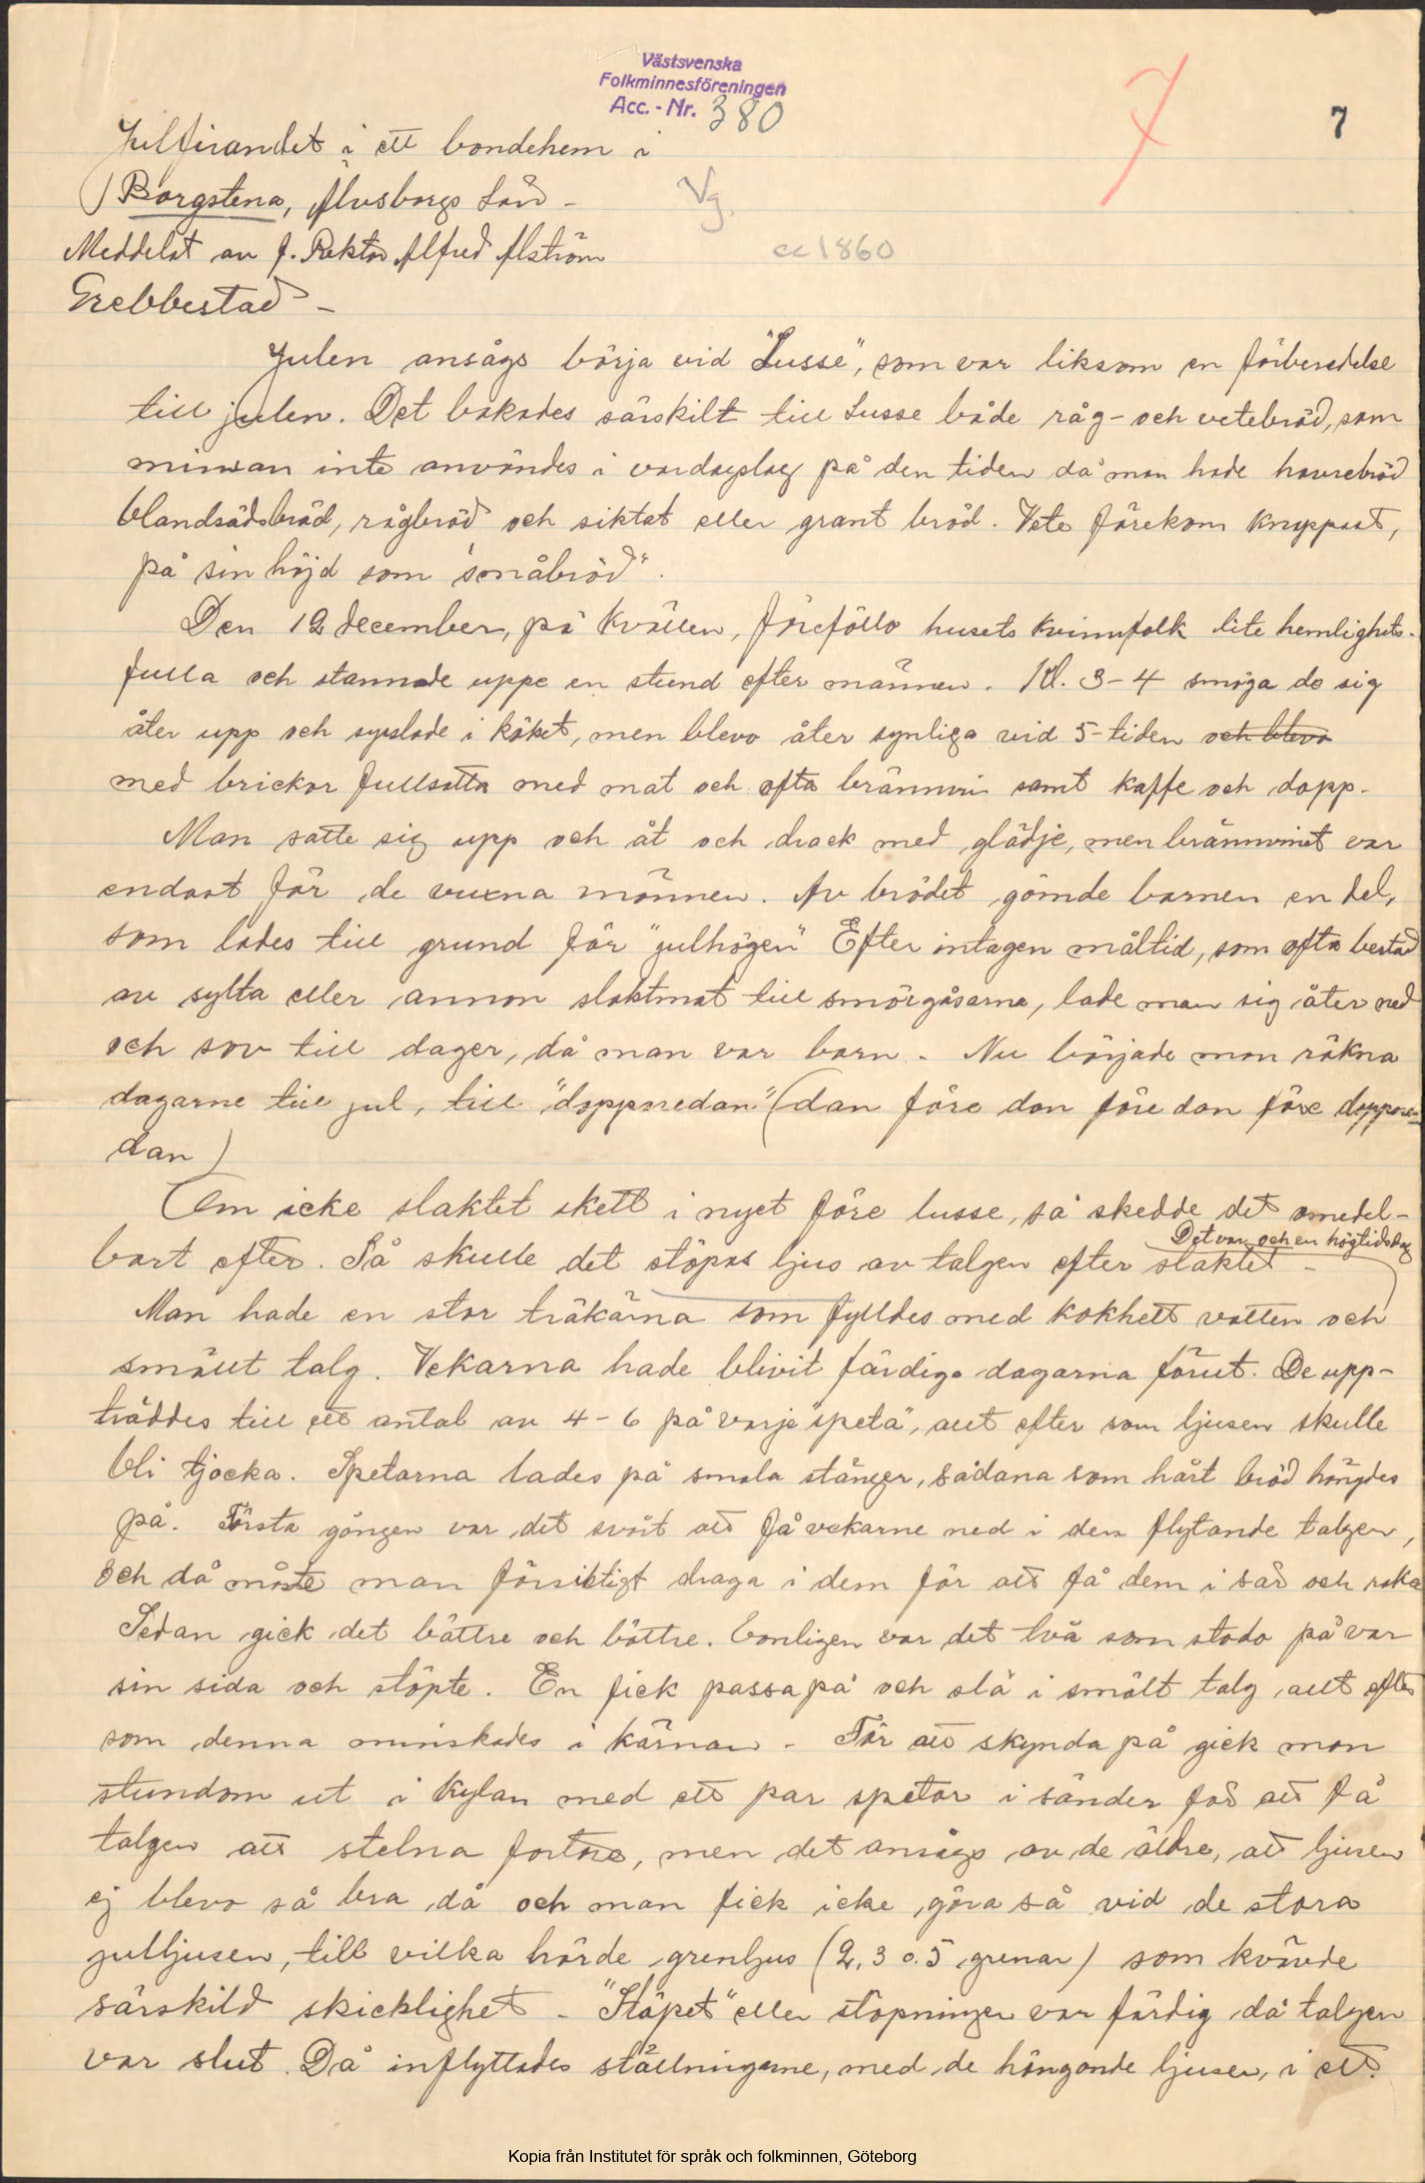 Västsvenska
Folkminnesföreningen
Acc. - Nr. 380
7
7
Julfirandet i ett bondehem i
Borgstena, Älvsborgs Län -
Vg.
Meddelat av f. Rektor Alfred Alström
ca 1860
Grebbestad -
Julen ansågs börja vid "Lusse", som var liksom en förberedelse
till julen. Det bakades särskilt till Lusse både råg- och vetebröd, som
minsan inte användes i vardagslag på den tiden då man hade havrebröd
blandsädsbröd, rågbröd och siktat eller grant bröd. Vete förekom knappast,
på sin höjd som "småbröd".
Den 12 december, på kvällen, föreföllo husets kvinnfolk lite hemlighets-
fulla och stannade uppe en stund efter männen. Kl. 3-4 smöga de sig
åter upp och sysslade i köket, men blevo åter synliga vid 5-tiden och blevo
med brickor fullsatta med mat och ofta brännvin samt kaffe och dopp.
Man satte sig upp och åt och drack med glädje, men brännvinet var
endast för de vuxna männen. Av brödet gömde barnen en del,
som lades till grund för "julhögen" Efter intagen måltid, som ofta bestod
av sylta eller annan slaktmat till smörgåsarna, lade man sig åter ned
och sov till dager, då man var barn. Nu började man räkna
dagarne till jul, till "doppredan" (dan före dan före dan före doppare-
dan)
Om icke slaktet skett i nyet före lusse, så skedde det omedel-
bart efter. Så skulle det stöpas ljus av talgen efter slaktet -
Det var och en högtidsdag
Man hade en stor träkärna som fylldes med kokhett vatten och
smält talg. Vekarna hade blivit färdiga dagarna förut. De upp-
träddes till ett antal av 4-6 på varje "speta", allt efter som ljusen skulle
bli tjocka. Spetarna lades på smala stänger, sådana som hårt bröd hängdes
på. Första gången var det svårt att få vekarne ned i den flytande talgen,
och då måste man försiktigt draga i dem för att få dem i sär och raka
Sedan gick det bättre och bättre. Vanligen var det två som stodo på var
sin sida och stöpte. En fick passa på och slå i smält talg allt efter
som denna minskades i kärnan - För att skynda på gick man
stundom ut i kylan med ett par spetor i sänder för att få
talgen att stelna fortare, men det ansågs av de äldre, att ljusen
ej blevo så bra då och man fick icke göra så vid de stora
julljusen, till vilka hörde grenljus (2, 3 o. 5 grenar) som krävde
särskild skicklighet - "Stöpet" eller stöpningen var färdig då talgen
var slut. Då inflyttades ställningarne, med de hängande ljusen, i ett
Kopia från Institutet för språk och folkminnen, Göteborg